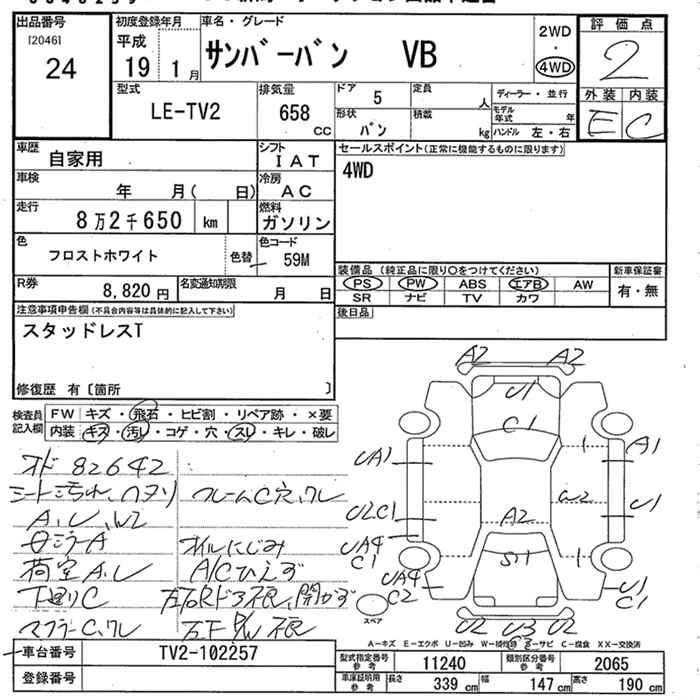 出品番号
[2046]
24
初度登録年月
平成
19 1月
車名・グレード
サンバーバン VB
2WD
・
4WD
評価点
2
外装 内装
E C
型式
LE-TV2
排気量
658
cc
ドア
5
定員
人
形状
バン
積載
kg
ディーラー・並行
モデル年式 年
ハンドル 左・右
車歴
自家用
シフト
IAT
車検
年 月( 日)
冷房
AC
走行
8万2千650 km
燃料
ガソリン
色
フロストホワイト
色替
色コード
59M
R券
8,820円
名変通知期限
月 日
セールスポイント(正常に機能するものに限ります)
4WD
装備品(純正品に限り○をつけてください)
PS PW ABS エアB AW
SR ナビ TV カワ
新車保証書
有・無
後日品
注意事項申告欄(不具合内容等は具体的に記入して下さい)
スタッドレスT
修復歴 有〔箇所 〕
検査員記入欄
FW キズ・飛石・ヒビ割・リペア跡・×要
内装 キズ・汚れ・コゲ・穴・スレ・キレ・破レ
オド 82642
シート汚れ、ハヌリ
A、U、W2
荷室A、U
下廻りC
マフラーC、クレ
フレームC穴、クレ
オイルにじみ
A/Cひえず
A2 A2
U1
C1
UA1
A1
U2C1
W2
U1
A2
UA4
C1
S11
UA4
C2
U1
C1
U2 U3 U2
スペア
A-キズ E-エクボ U-凹み W-補修跡 S-サビ C-腐食 XX-交換済
車台番号
TV2-102257
登録番号
型式指定番号
参考
11240
類別区分番号
参考
2065
車庫証明用
参考
長さ 339 cm
幅 147 cm
高さ 190 cm